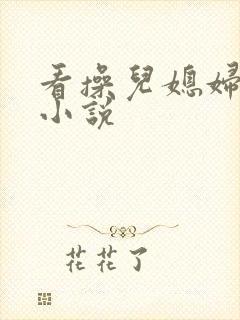 看操兒媳婦
小說
花花了